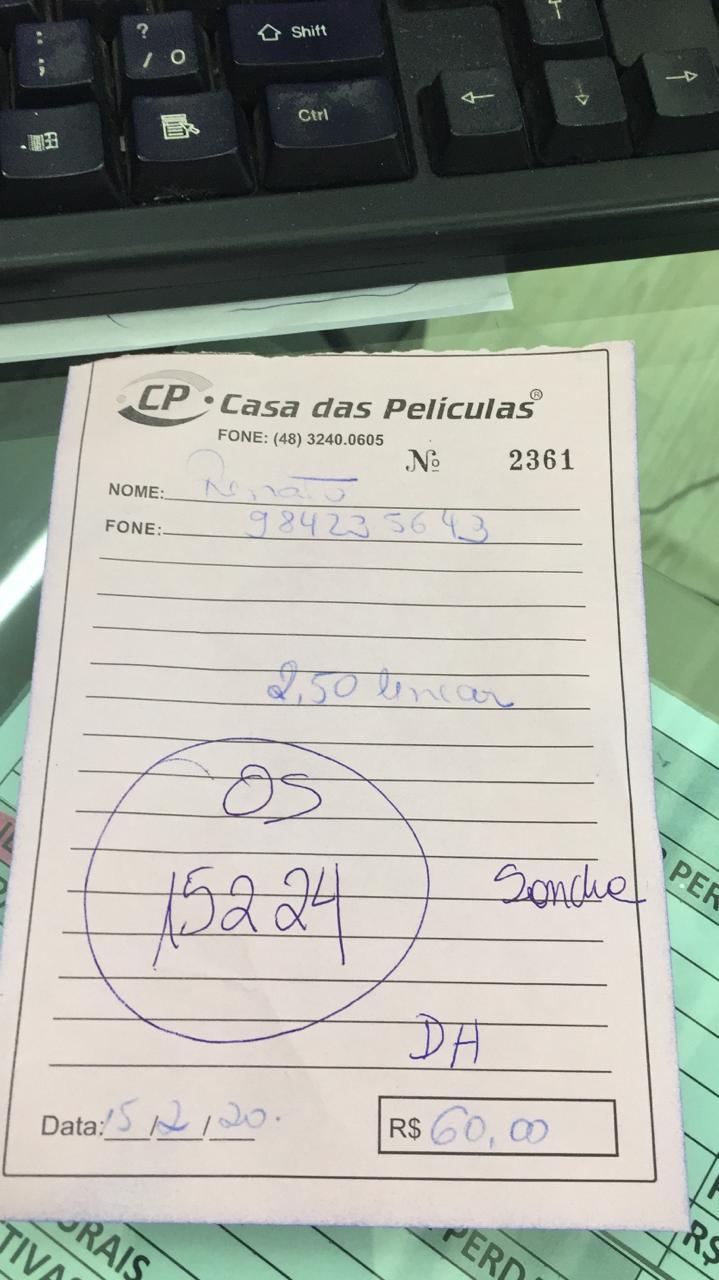 :
;
?
/ O
Shift
Ctrl
CP Casa das Películas®
FONE: (48) 3240.0605
Nº 2361
NOME: Renato
FONE: 984235643
2,50 linear
OS
15224
DH
Data: 15/2/20.
R$ 60,00
PER
R$
PERD
ORAIS
TIVAS